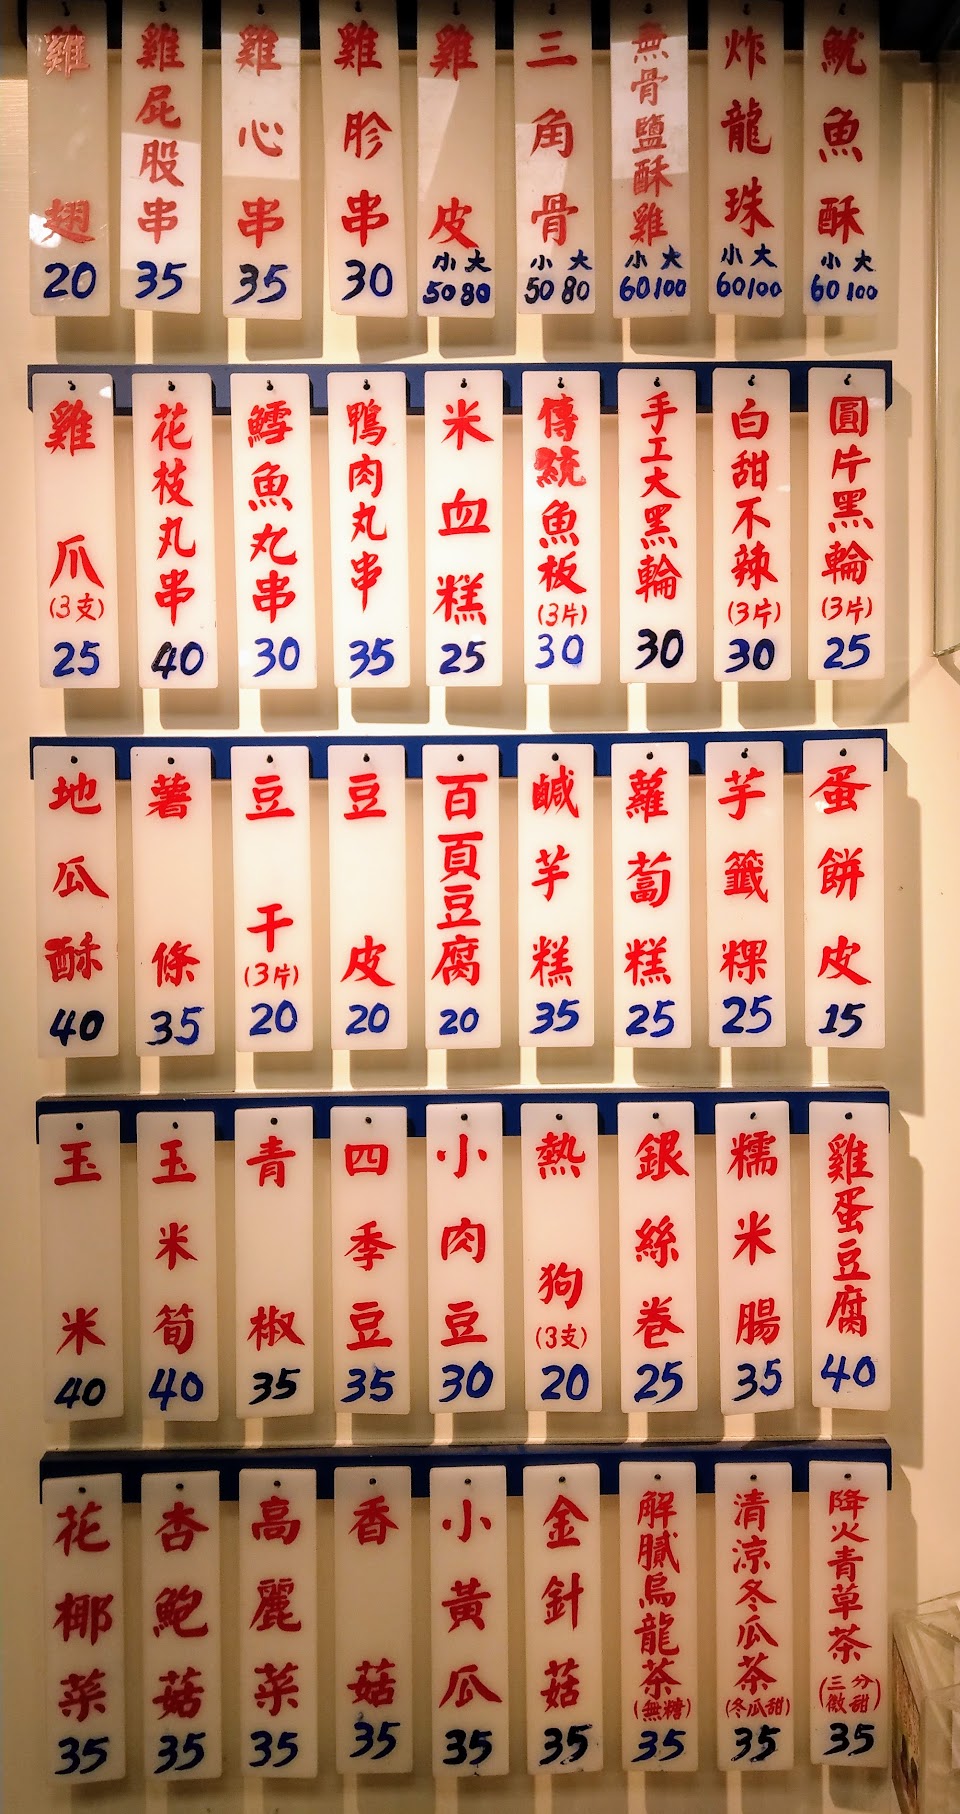 魷魚酥
小 大
60 100
炸龍珠
小 大
60 100
無骨鹽酥雞
小 大
60 100
三角骨
小 大
50 80
雞皮
小 大
50 80
雞胗串
30
雞心串
35
雞屁股串
35
雞翅
20
圓片黑輪
(3片)
25
白甜不辣
(3片)
30
手工大黑輪
30
傳統魚板
(3片)
30
米血糕
25
鴨肉丸串
35
鱈魚丸串
30
花枝丸串
40
雞爪
(3支)
25
蛋餅皮
15
芋籤粿
25
蘿蔔糕
25
鹹芋糕
35
百頁豆腐
20
豆皮
20
豆干
(3片)
20
薯條
35
地瓜酥
40
雞蛋豆腐
40
糯米腸
35
銀絲卷
25
熱狗
(3支)
20
小肉豆
30
四季豆
35
青椒
35
玉米筍
40
玉米
40
降火青草茶
(三分微甜)
35
清涼冬瓜茶
(冬瓜甜)
35
解膩烏龍茶
(無糖)
35
金針菇
35
小黃瓜
35
香菇
35
高麗菜
35
杏鮑菇
35
花椰菜
35